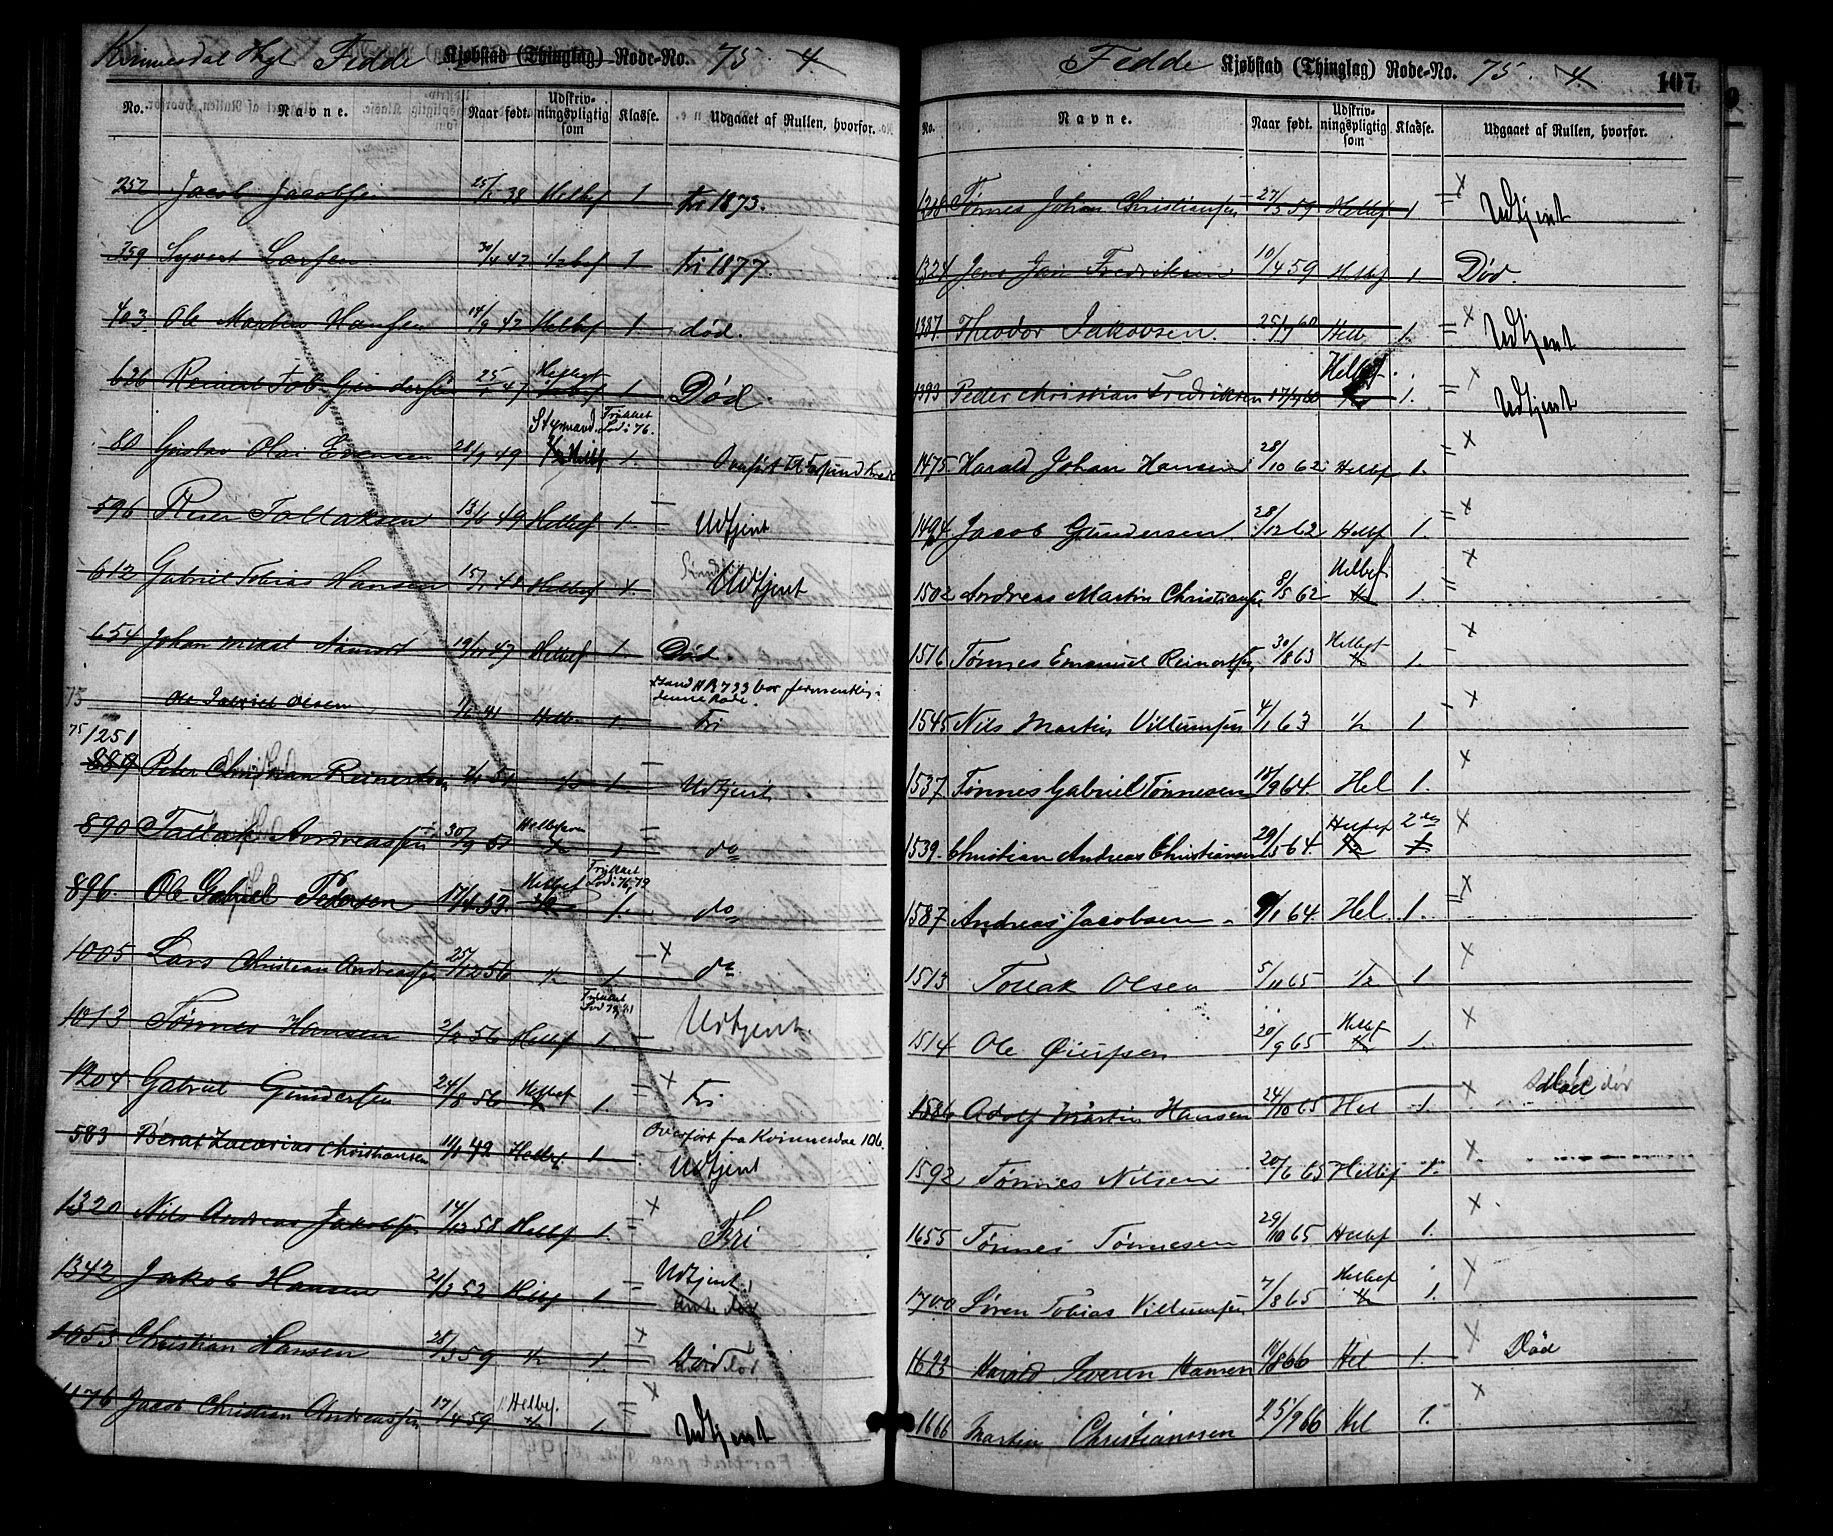 Fedde Kjøbstad (Thinglag) Rode-No. 75. 4.
No. Navne. Naar født. Udskrivningspligtig som Klasse. Udgaaet af Rullen, hvorfor.
252 Jacob Jacobsen 25/ 38 Helbef 1 fri 1873.
359 Syvert Larsen 30/4 42 1/2 bef 1 fri 1877.
403 Ole Martin Hansen 14/9 42 Helbef 1 død.
626 Reinert Tob Gundersen 25/ 47 Helbef 1 Død
80 Gustav Olai Evensen 28/ 49 Styrmand 1/2 Helbef Frittaet Lod: 76. 1. Overført til
596 Peter Tollaksen 13/6 49 Helbef 1. Udtjent
612 Gabriel Tobias Hansen 15/ 48 Helbef 1. Udtjent
654 Johan 19/ 47 Helbef 1. Død.
75 Ole Gabriel Olsen 41 Helb. 1. denne Rode. Fri
75/1251
889 Peter Christian Reinertsen 51 1/2 1. Udtjent
890 Tallak Andreassen 30/9 51 Helbefaren 1/2 1 do
896. Ole Gabriel Pedersen 17/4 53. Helbef Frittaet Lod: 76, 79 1. do
1005 Lars Christian Andreassen 27/12 56 1/2 1 × do
1013 Tønnes Hansen 2/2 56 Helbef Frittaet Lod 79, 81 1. Udtjent.
1204 Gabriel Gundersen 24/8 56 Helbef 1. × Fri
583 Berat Zacarias Christiansen 11/ 42 Helbef. 1 Overført fra Kvinnesdal 106. Udtjent
1320 Nils Andreas Jakobsen 14/12 58 Helbef 1. × Fri
1342 Jakob Hansen 21/ 52 Helbf 1 Udtjent
1053 Christian Hansen 28/3 59 1/2 1. ×
1176 Jacob Christian Andreassen 17/4 59 Helbef. 1/2 1. × Udtjent
Fedde Kjøbstad (Thinglag) Rode-No. 75. 4. 107
No. Navne. Naar født. Udskrivningspligtig som Klasse. Udgaaet af Rullen, hvorfor.
1218 Tønnes Johan Christiansen 27/3 59 Helbef 1 × Udtjent
1324 Jens Jan Fredriksen 10/4 59 Helbf 1. Død.
1387. Theodor Jakobsen. 25/ 60 Helb 1. × Udtjent
1393 Peder Christian Fredriksen 17/ 60 Helbef. 1. × Udtjent
1475 Harald Johan Hansen 28/10 62 Helbef 1. ×
1494 Jacob Gundersen 28/12 62 Helbf 1. ×
1502 Andreas Martin Christiansen 8/5 62 Helbef 1. ×
1516 Tønnes Emanuel Reinertsen 30/8 63 Helbef 1/2 1. ×
1545 Nils Martin Villumsen 4/1 63 1/2 1 ×
1537 Tønnes Gabriel Tønnesen 18/9 64. Hel 1. ×
1539. Christian Andreas Christiansen 29/5 64. Helbef 1/2 2den 1. ×
1587 Andreas Jacobsen 9/1 64. Hel 1. ×
1513 Tollak Olsen 5/11 65 1/2 1. ×
1514 Ole 20/9 65 Helbef 1/2 1. ×
1586 Adolf Martin Hansen 24/10 65 Hel 1. × Død
1592 Tønnes Nilsen 20/6 65 Helbef 1. ×
1655 Tønnes Tønnesen 29/10 65. Helbef 1. ×
1700 Søren Tobias Villumsen 7/8 65 Helbef 1/2 1. ×
1623 Harald Severin Hansen 18/8 66 Hel 1. × Død
1666 Martin Christianssen 25/9 66 Hel 1. ×